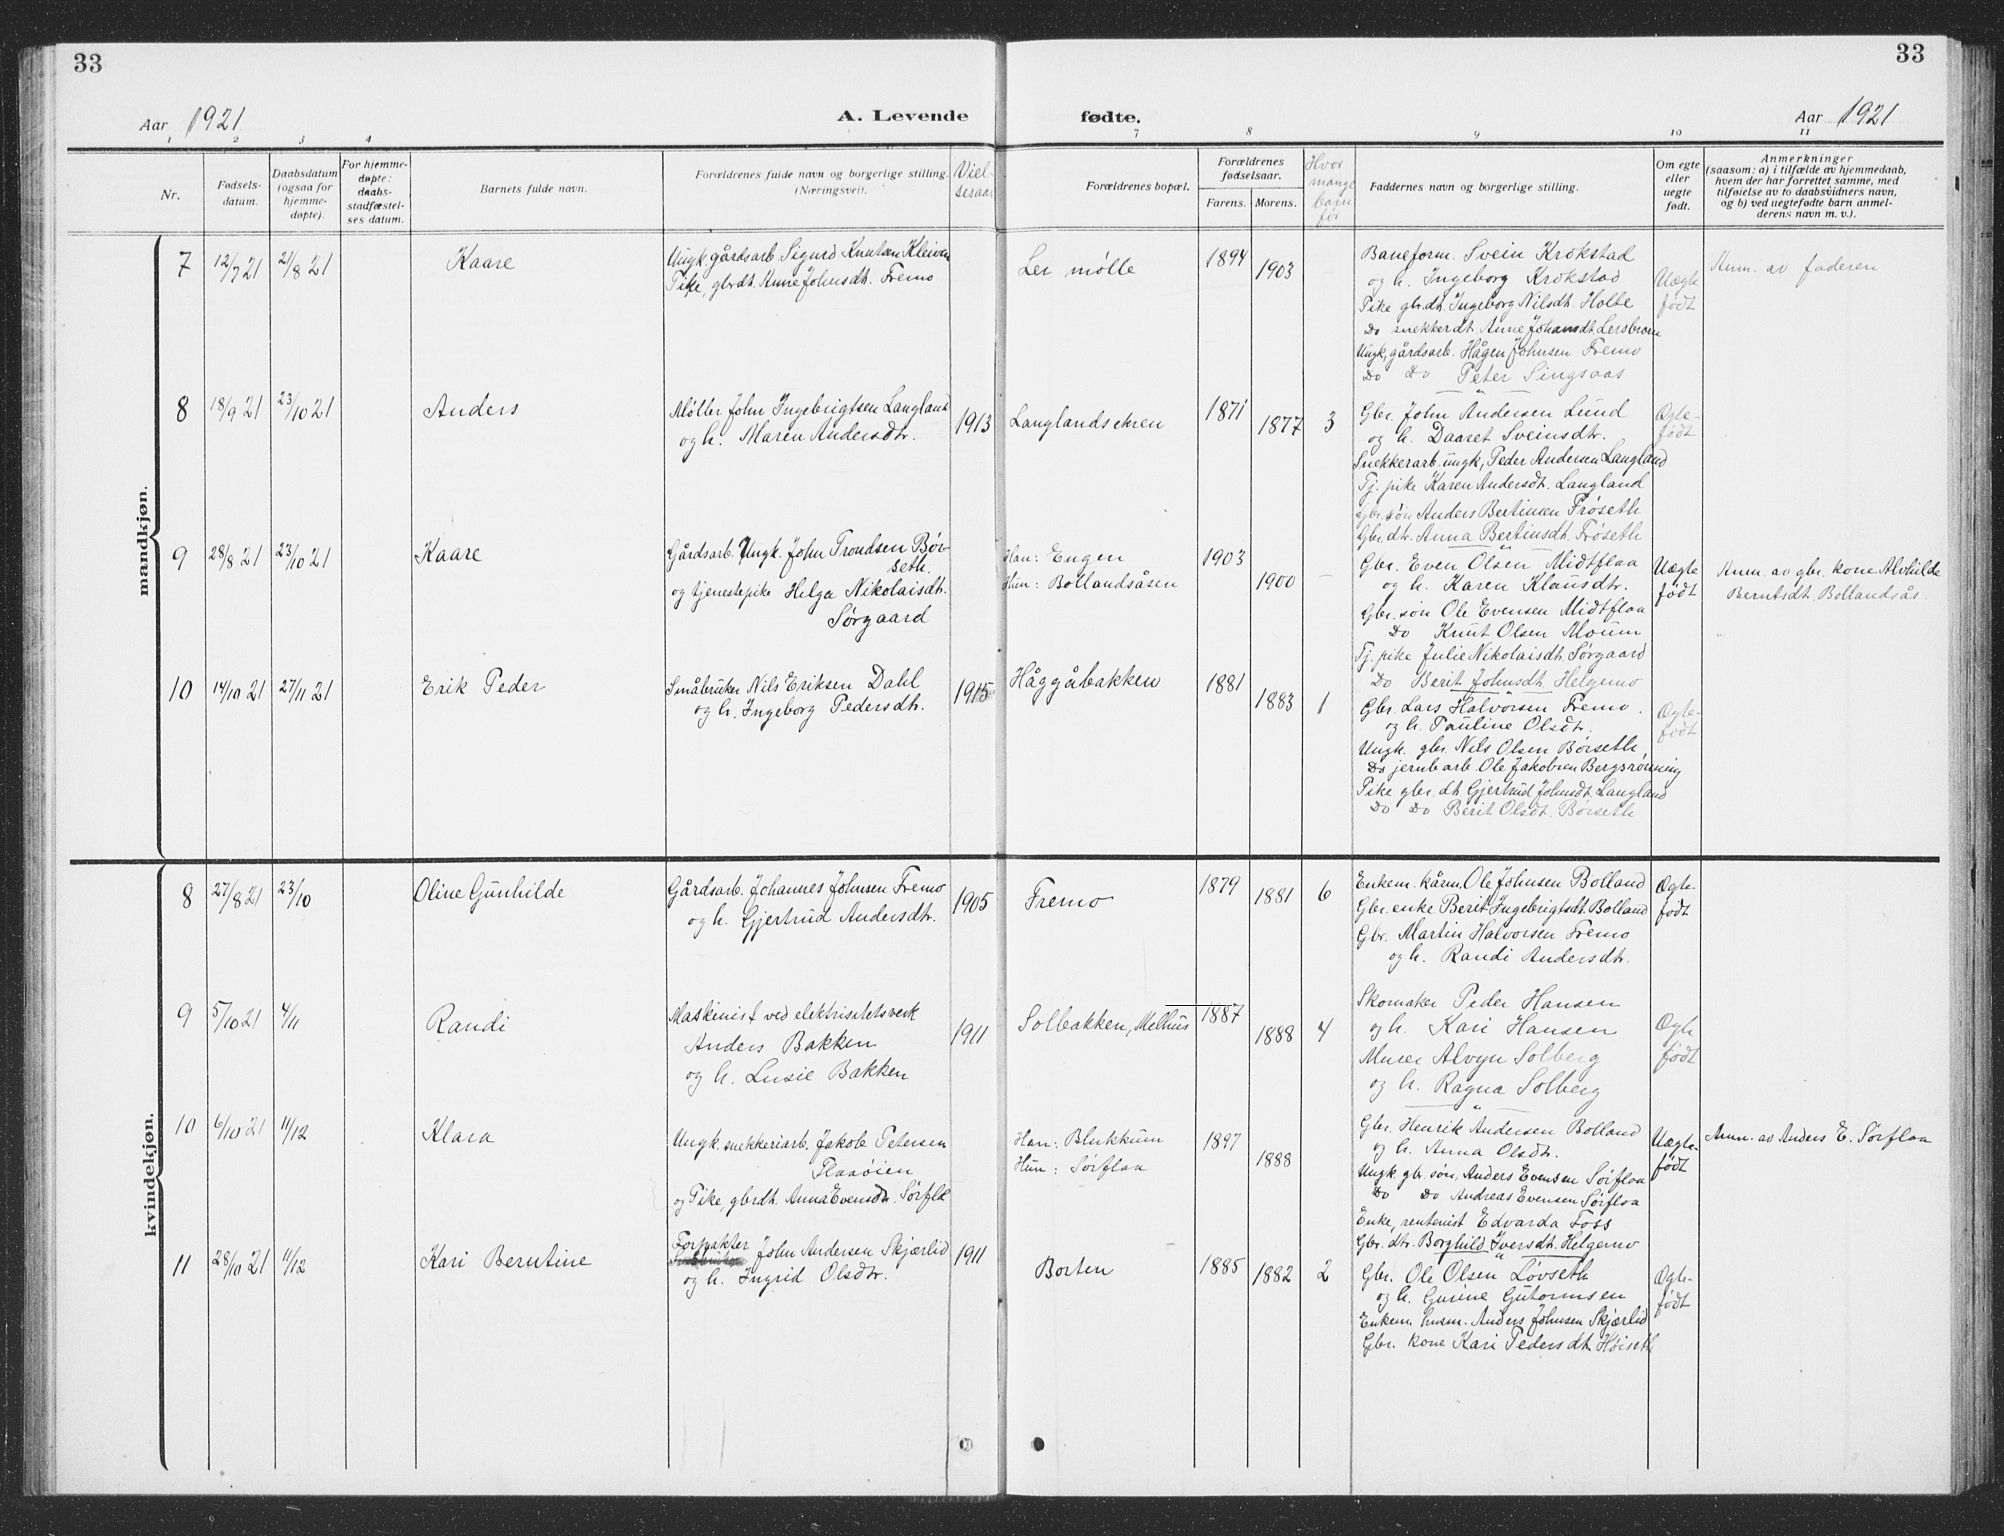 33
33
Aar 1921
A. Levende
fødte.
Aar 1921
1 2 3 4
7 8 9 10 11
Nr.
Fødsels-
datum.
Daabsdatum
(ogsaa for
hjemme-
døpte).
For hjemme-
døpte:
daabs-
stadfæstel-
ses datum.
Barnets fulde navn.
Forældrenes fulde navn og borgerlige stilling.
(Næringsvei).
Viel-
sesaar
Forældrenes bopæl.
Forældrenes
fødselsaar.
Farens. Morens.
Hvor
mange
barn
før
Faddernes navn og borgerlige stilling.
Om egte
eller
uegte
født.
Anmerkninger
(saasom: a) i tilfælde av hjemmedaab,
hvem der har forrettet samme, med
tilføielse av to daabsvidners navn,
og b) ved uegtefødte barn anmel-
derens navn m. v.).
mandkjøn.
7 12/7 21 21/8 21 Kaare
Ungk. gårdsarb. Sigurd Knutsen Kleiven
Pike, gbrdt. Anne Johnsdt. Fremo
Ler mølle 1894 1903
Baneform. Svein Krokstad
og h. Ingeborg Krokstad
Pike gbr.dt. Ingeborg Nilsdt. Holte
Do snekkerdt. Anne Johansdt. Lersbroen
Ungk, gårdsarb. Hågen Johnsen Fremo
Do Do Peter Singsaas
Uægte
født
Anm. av faderen
8 18/9 21 23/10 21 Anders
Møller John Ingebrigtsen Langland
og h. Maren Andersdtr.
1913 Langlandsøren 1871 1877 3
Gbr. John Andersen Lund
og h. Daaret Sveinsdtr.
Snekkerarb. ungk, Peder Andersen Langland
Tj. pike Karen Andersdt. Langland
Gbr. søn Anders Bertinsen Frøseth
Gbr. dt. Anna Bertinsdt. Frøseth
Ægte-
født
9 28/8 21 23/10 21 Kaare
Gårdsarb. Ungk. John Trondsen Bør-
seth.
og tjenestepike Helga Nikolaisdt.
Sørgaard
Han: Engen
Hun: Bollandsåsen
1903 1900 -
Gbr. Even Olsen Midtflaa
og h. Karen Klausdtr.
Gbr. søn Ole Evensen Midtflaa
Do Knut Olsen Moum
Tj. pike Julie Nikolaisdt. Sørgaard
Do Berit Johnsdt. Helgemo
Uægte
født
Anm. av gbr. kone Alvhilde
Berntsdt. Bollandsås.
10 14/10 21 27/11 21 Erik Peder
Småbruker Nils Eriksen Dahl
og h. Ingeborg Pedersdt.
1915 Håggåbakken 1881 1883 1
Gbr. Lars Halvorsen Fremo.
og h. Pauline Olsdtr.
Ungk. gbr. Nils Olsen Børseth,
Do jernbarb. Ole Jakobsen Bergsrønning
Pike gbr. dt Gjertrud Johnsdt. Langland
Do Do Berit Olsdt. Børseth
Ægte-
født
kvindekjøn.
8 27/8 21 23/10 Oline Gunhilde
Gårdsarb. Johannes Johnsen Fremo
og h. Gjertrud Andersdtr.
1905 Fremo 1879 1881 6
Enkem. kårm. Ole Johnsen Bolland
Gbr. enke Berit Ingebrigtsdt. Bolland
Gbr. Martin Halvorsen Fremo
og h. Randi Andersdtr.
Ægte-
født
9 5/10 21 4/11 Randi
Maskinist ved elektrisitetsverk
Anders Bakken
og h. Lusie Bakken
1911 Solbakken, Melhus 1887 1888 4
Skomaker Peder Hansen
og h. Kari Hansen
Murer Alvyn Solberg
og h. Ragna Solberg
Ægte
født
10 6/10 21 11/12 Klara
Ungk. snekkeriarb. Jakob Petersen
Flaaøien
og Pike, gbrdt. Anna Evensdt. Sørfla
Han: Blukkum
Hun: Sørflaa
1897 1888
Gbr. Henrik Andersen Bolland
og h. Anna Olsdt.
Ungk. gbr søn, Anders Evensen Sørflaa
Do Do Andreas Evensen Sørflaa
Enke, rentenist Edvarda Foss
Gbr. dtr. Borghild Iversdt. Helgemo
Uægte-
født
Anm. av Anders E. Sørflaa
11 28/10 21 11/12 Kari Berntine
Forpakter
John Andersen Skjærlid
og h. Ingrid Olsdtr.
1911 Borten 1885 1882 2
Gbr. Ole Olsen Løvseth
og h. Gurine Gutormsen
Enkem. husm. Anders Johnsen Skjærlid
Gbr. kone Kari Pedersdt. Høiseth
Ægte-
født